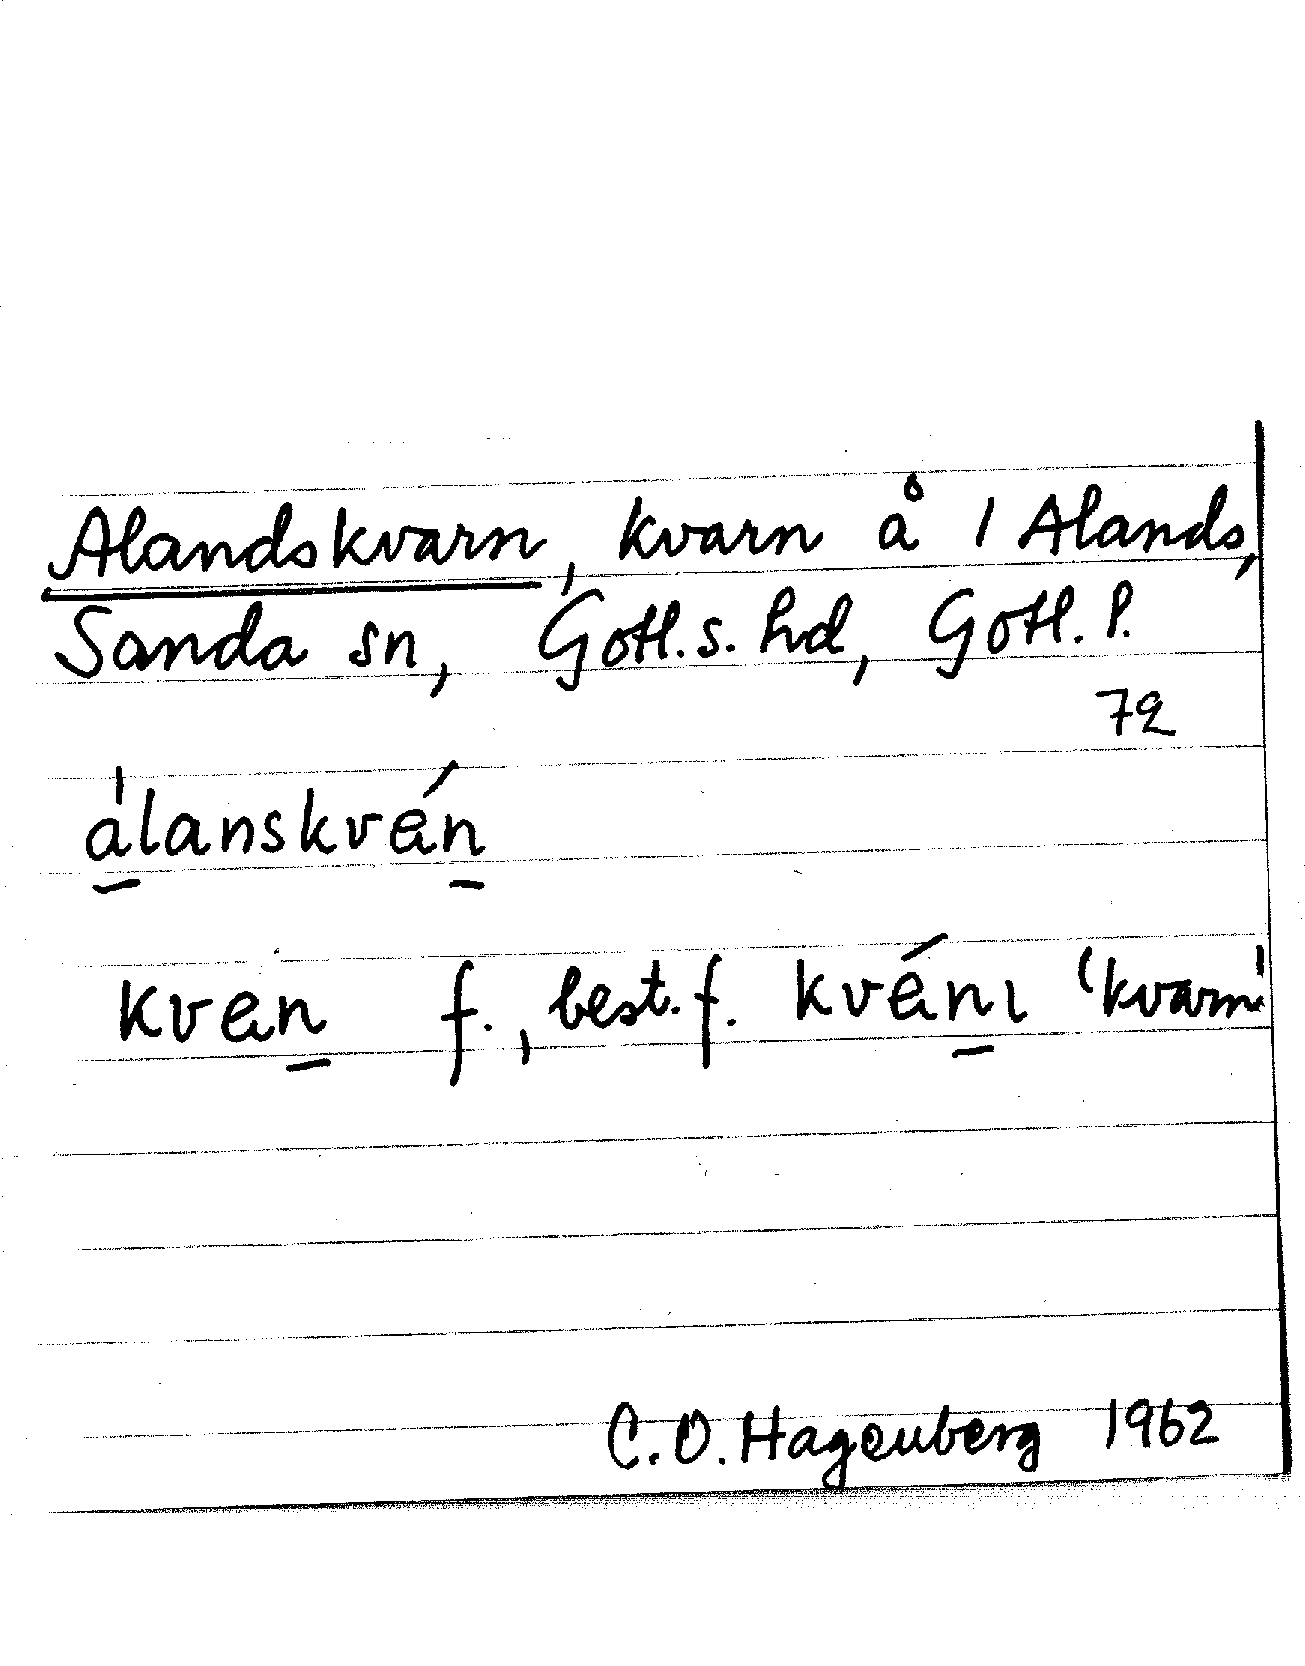 Alandskvarn, kvarn å 1 Alands,
Sanda sn, Gotl. s. hd, Gotl. l.
72
a̲̍lanskvén̲
kven̲ f., best. f. kvén̲ı 'kvarn'
C. O. Hagenberg 1962